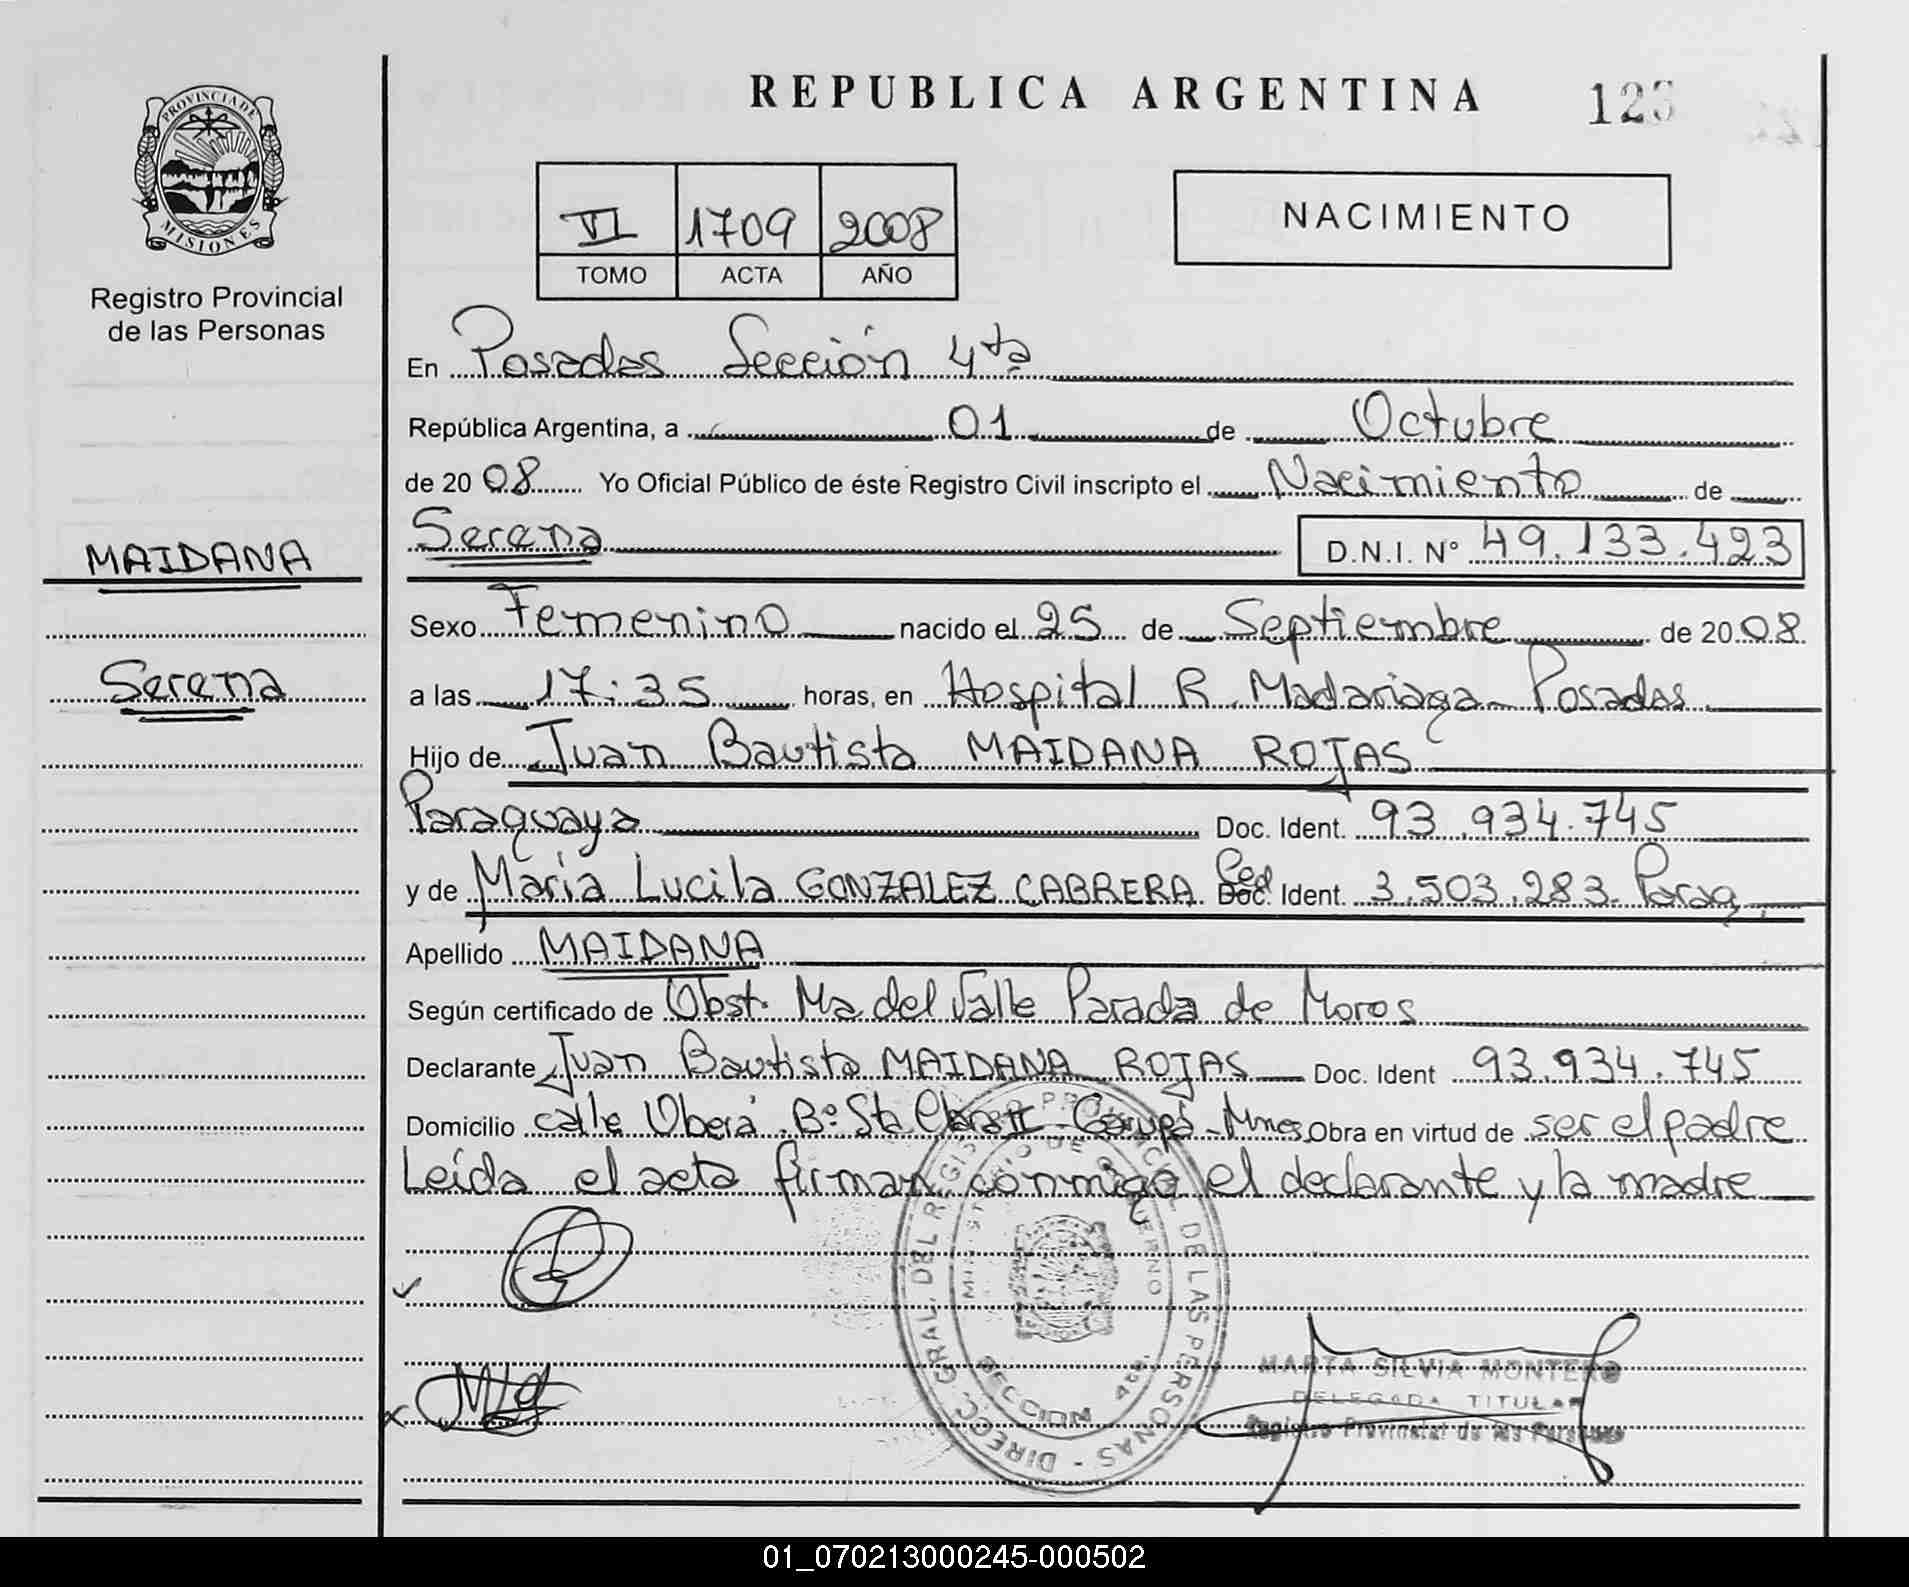 REPUBLICA ARGENTINA
PROVINCIA DE
MISIONES
Registro Provincial
de las Personas
VI 1709 2008
TOMO ACTA AÑO
NACIMIENTO
En Posadas Sección 4ta
República Argentina, a 01 de Octubre
de 2008 Yo Oficial Público de éste Registro Civil inscripto el Nacimiento de
Serena D.N.I. Nº 49.133.423
MAIDANA
Serena
Sexo Femenino nacido el 25 de Septiembre de 2008
a las 17:35 horas, en Hospital R. Madariaga - Posadas
Hijo de Juan Bautista MAIDANA ROJAS
Paraguaya Doc. Ident. 93.934.745
y de María Lucila GONZALEZ CABRERA Ced Doc. Ident. 3.503.283. Parag.
Apellido MAIDANA
Según certificado de Obst. Ma del Valle Parada de Moros
Declarante Juan Bautista MAIDANA ROJAS Doc. Ident 93.934.745
Domicilio calle Oberá Bº Sta Clara II - Garupá - Mnes Obra en virtud de ser el padre
Leída el acta firman conmigo el declarante y la madre
DIRECC. GRAL. DEL REGISTRO PROVINCIAL DE LAS PERSONAS
MINISTERIO DE GOBIERNO
SECCION 4ta
MARTA SILVIA MONTERO
DELEGADA TITULAR
Registro Provincial de las Personas
01_070213000245-000502